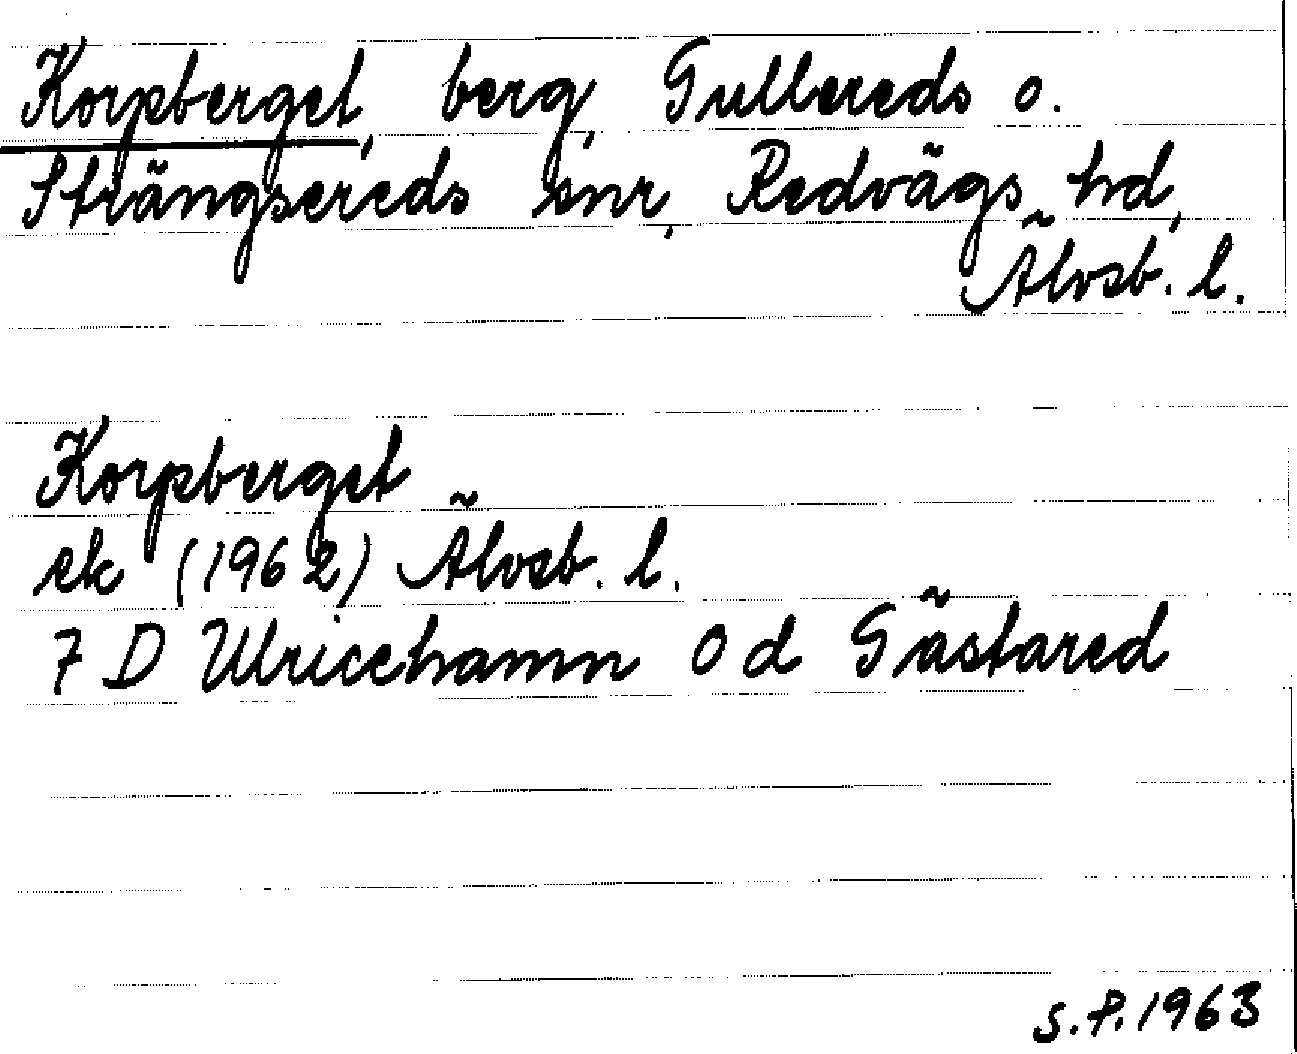 Korpberget, berg, Gullereds o.
Strängsereds snr, Redvägs hd,
Älvsb. l.
Korpberget
ek (1962) Älvsb. l.
7 D Ulricehamn 0 d Gästared
S.P. 1963